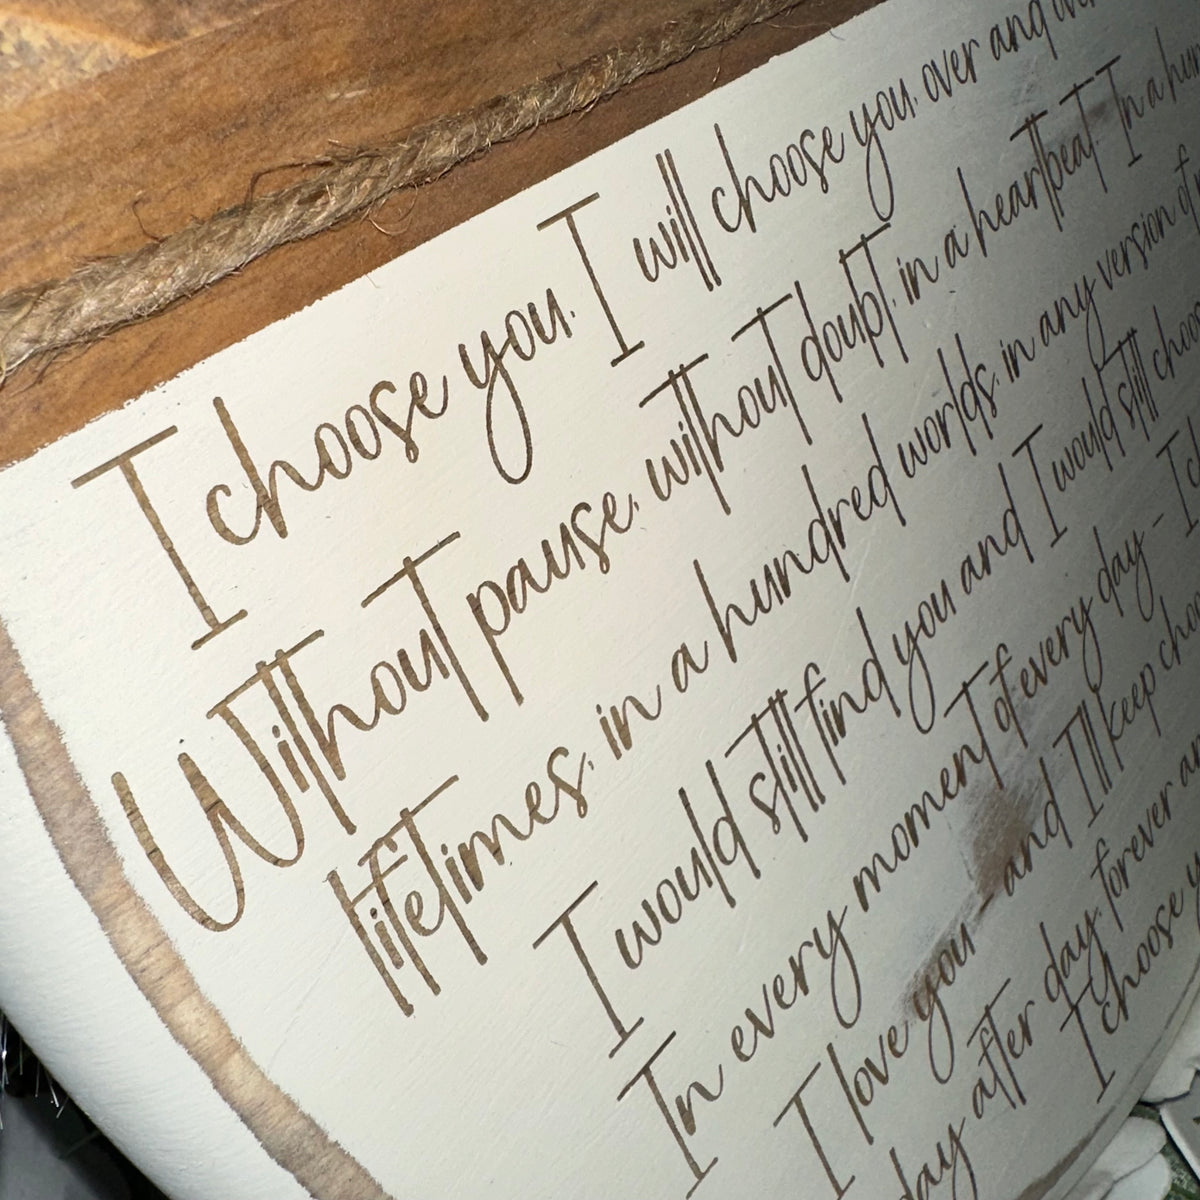 I choose you. I will choose you. over and over
Without pause, without doubt, in a heartbeat. In a
lifetimes, in a hundred worlds, in any version of
I would still find you and I would still
In every moment of every day -
I love you and I'll keep
day after day, forever
I choose